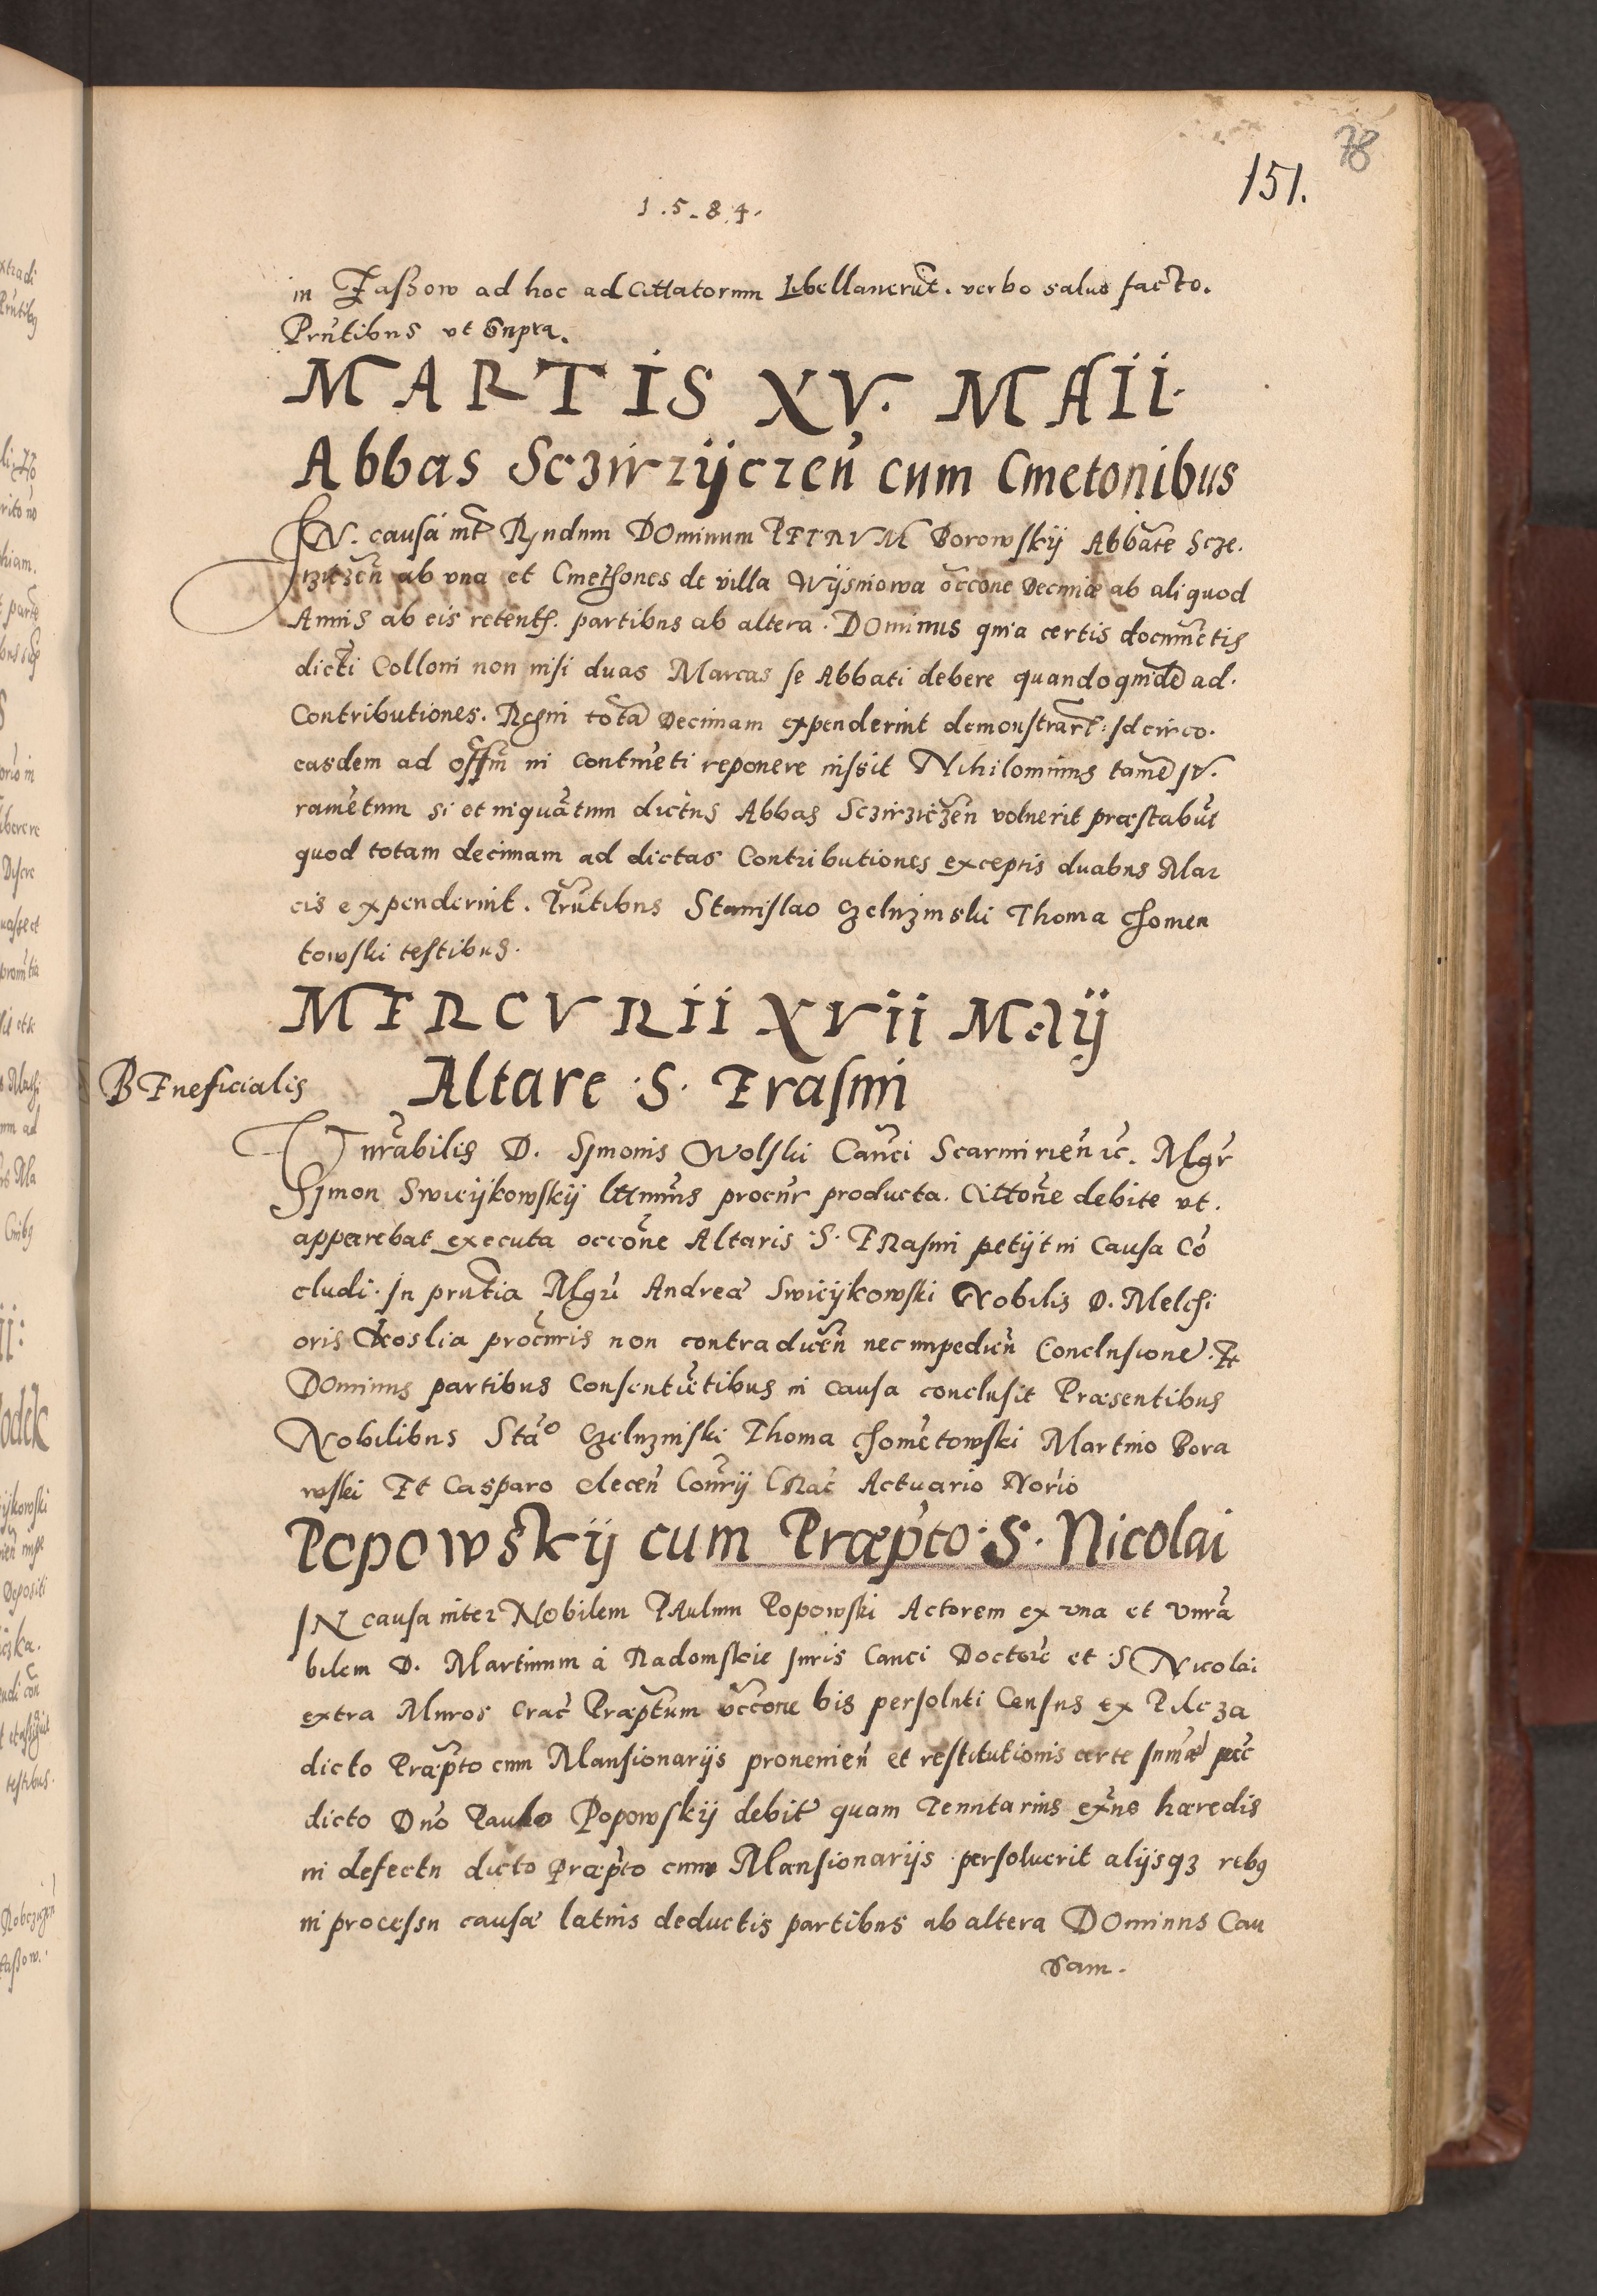 78
151.
1.5.8.4.
in Zaßow ad hoc ad Cittatorum Libellauerūt. verbo saluo facto.
Prñtibus vt Supra.
MARTIS XV. MAII.
Abbas Sczirzijczeñ cum Cmetonibus
IN. causa int Rndum DOminum PETRVM Borowskij Abbatē Scze.
rziczeñ ab vna et Cmethones de villa Wijsniowa occone Decimæ ab aliquod
Annis ab eis retent. partibus ab altera. DOminus quia certis documētis
dicti Colloni non nisi duas Marcas se Abbati debere quandoquidē ad.
Contributiones. Regni totā Decimam expenderint demonstrart: Idcirco.
easdem ad offm̄ ni contūeti reponere iussit Nihilominus tamē IV.
ramētum si et inquātum dictus Abbas Sczirziczeñ voluerit præstabūt
quod totam decimam ad dictas Contributiones exceptis duabus Mar
cis expenderint. Prñtibus Stanislao Czeluzinski Thoma Chomen
towski testibus.
MERCVRII XVII MAIJ
BEneficialis
Altare S. Erasmi
Vnrabilis D. Simonis Wolski Canci Scarmirieñ ic. Mgr
Simon Swicijkowskij lttimus procur producta. Cittone debite vt.
apparebat executa occone Altaris S. ERasmi petijt in Causa Cō
cludi. In prñtia Mgri Andreæ Swicijkowski Nobilis D. Melchi
oris Koslia procuris non contradiceñ nec impedieñ Conclusionē. Et
DOminus partibus Consentiētibus in causa conclusit Præsentibus
Nobilibus Stao Czeluzinski Thoma Chomētowski Martino Bora
wski Et Casparo cleceñ Conrij CRac Actuario Norio
Popowskij cum Præpto S. Nicolai
IN causa inter Nobilem PAulum Popowski Actorem ex vna et Vnra
bilem D. Martinum à Radomskie Iuris Canci Doctore et S Nicolai
extra Muros Crac Præptum occone bis persoluti Census ex Pilcza
dicto Præpto cum Mansionarijs prouenieñ et restitutionis certe summæ pec
dicto Dno Paulo Popowskij debite quam tenutarius exns hæredis
in defectu dicto Præpto cum Mansionarijs persoluerit alijsqz rebus
in processu causæ latius deductis partibus ab altera DOminus Cau
sam.